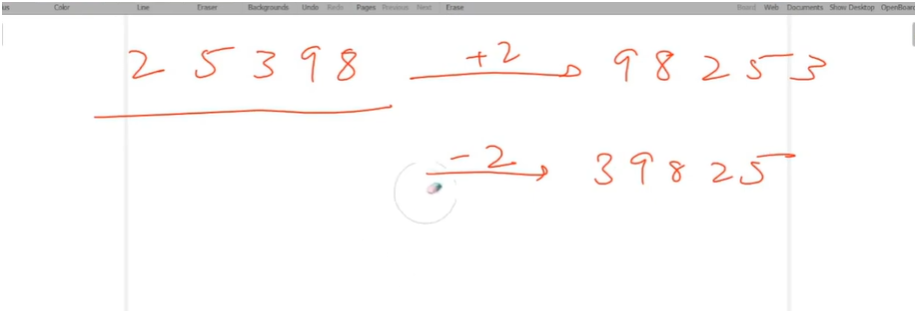 us Color Line Eraser Backgrounds Undo Redo Pages Previous Next Erase Board Web Documents Show Desktop OpenBoard
2 5 3 9 8 +2 → 9 8 2 5 3
-2 → 3 9 8 2 5